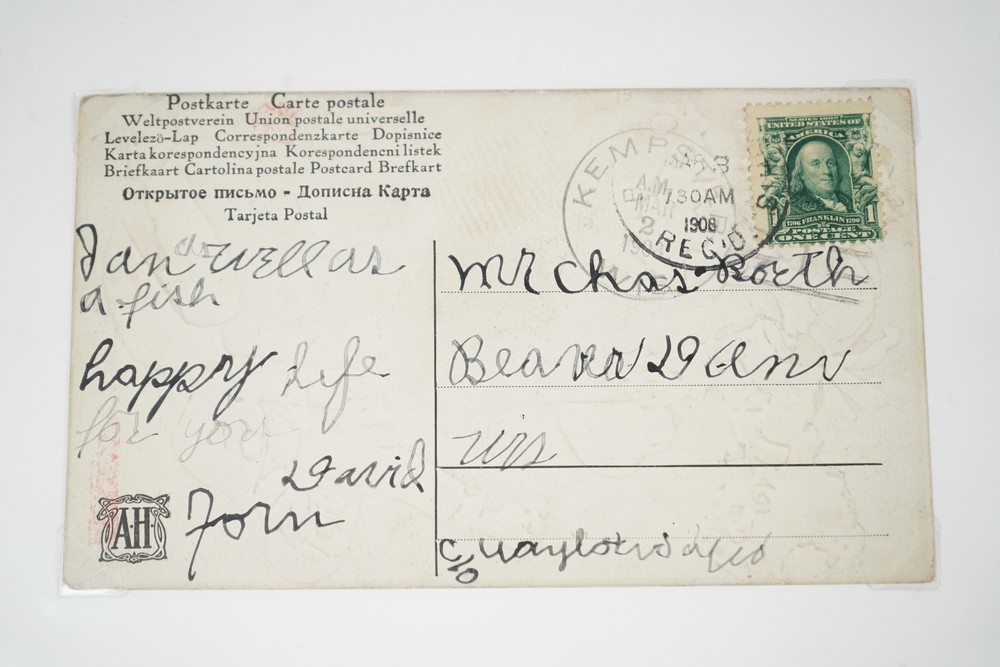 Postkarte Carte postale
Weltpostverein Union postale universelle
Levelezö-Lap Correspondenzkarte Dopisnice
Karta korespondencyjna Korespondencni listek
Briefkaart Cartolina postale Postcard Brefkart
Открытое письмо - Дописна Карта
Tarjeta Postal
SERIES 1902
UNITED STATES OF
AMERICA
1706 FRANKLIN 1790
1 POSTAGE 1
ONE CENT
KEMPST
MAR 3
7 30 AM
1908
REC'D
A.M.
MAR
2
as well as
a fish
happy life
for you
David
A.H.
Mr Chas
Beaver Dam
Wis
c/o